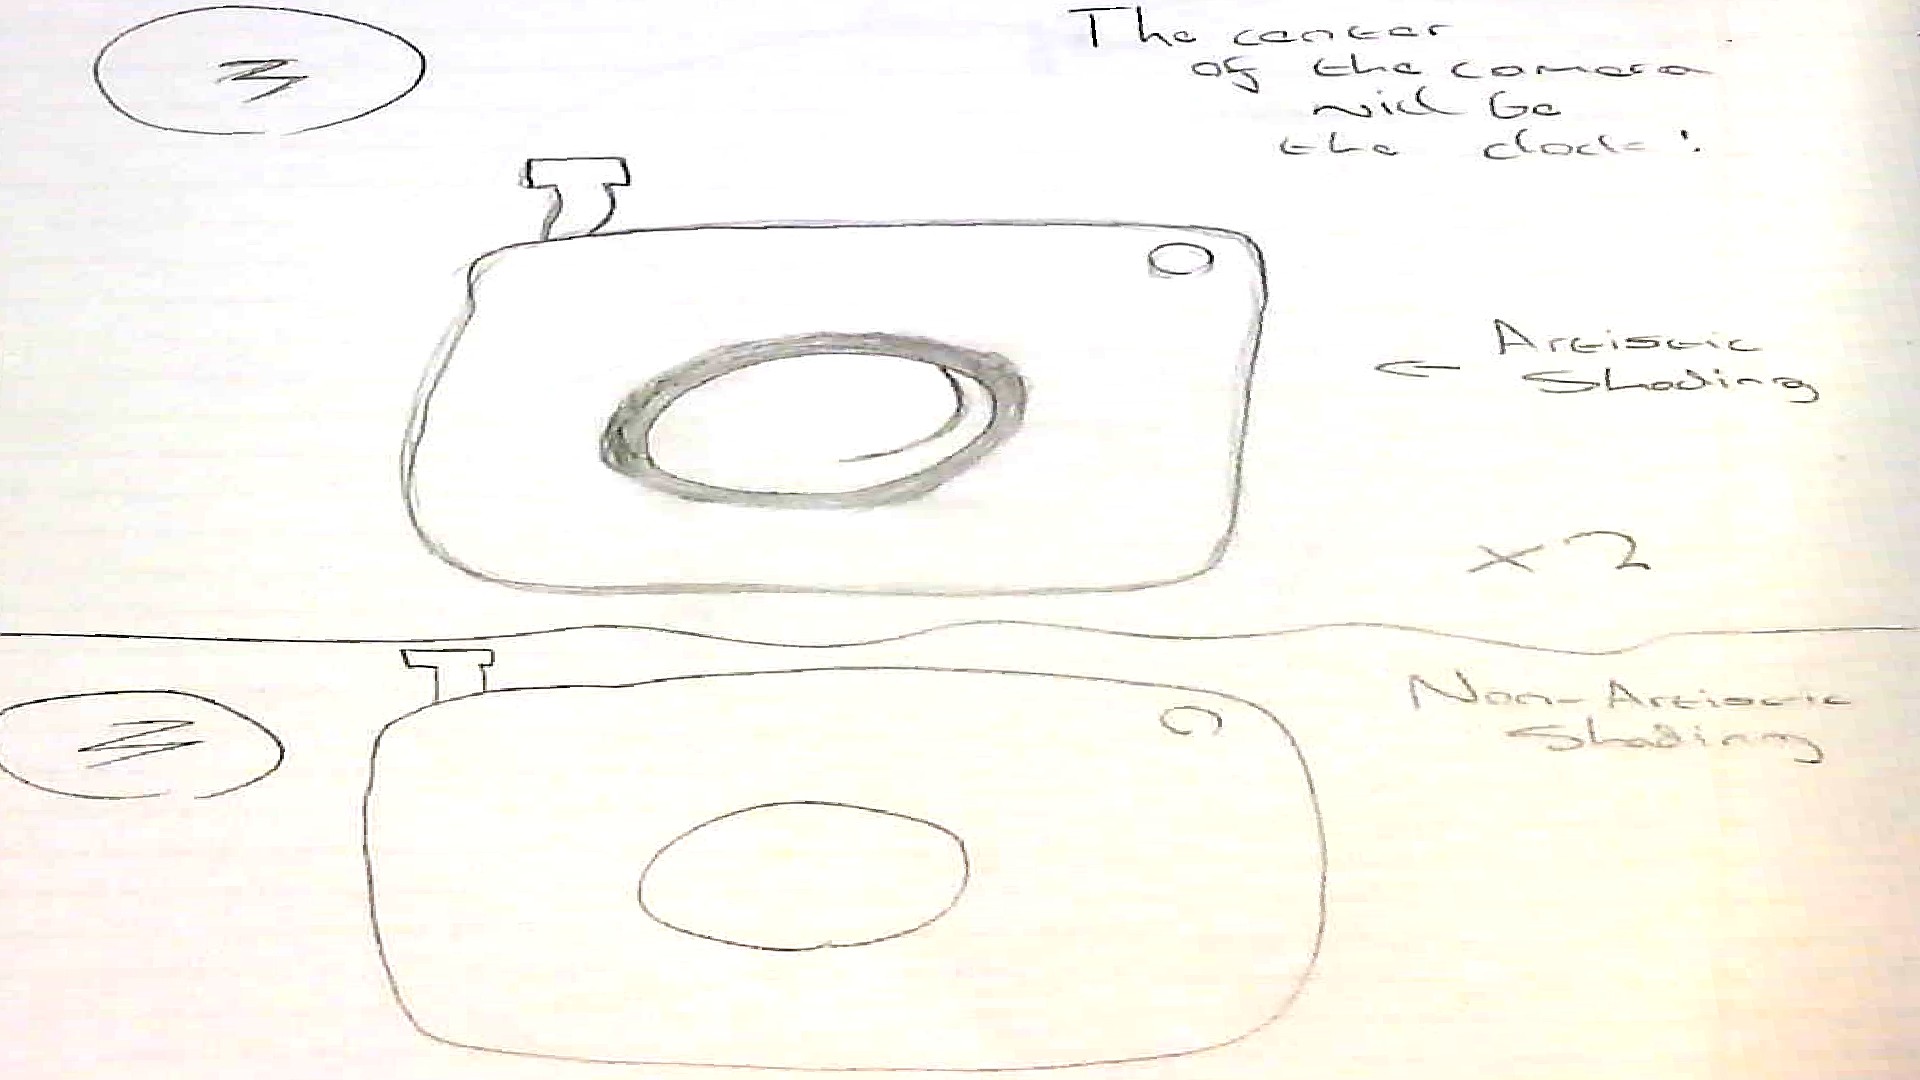 3
The center
of the camera
will be
the clock!
← Artistic
Shading
x2
Non-Artistic
Shading